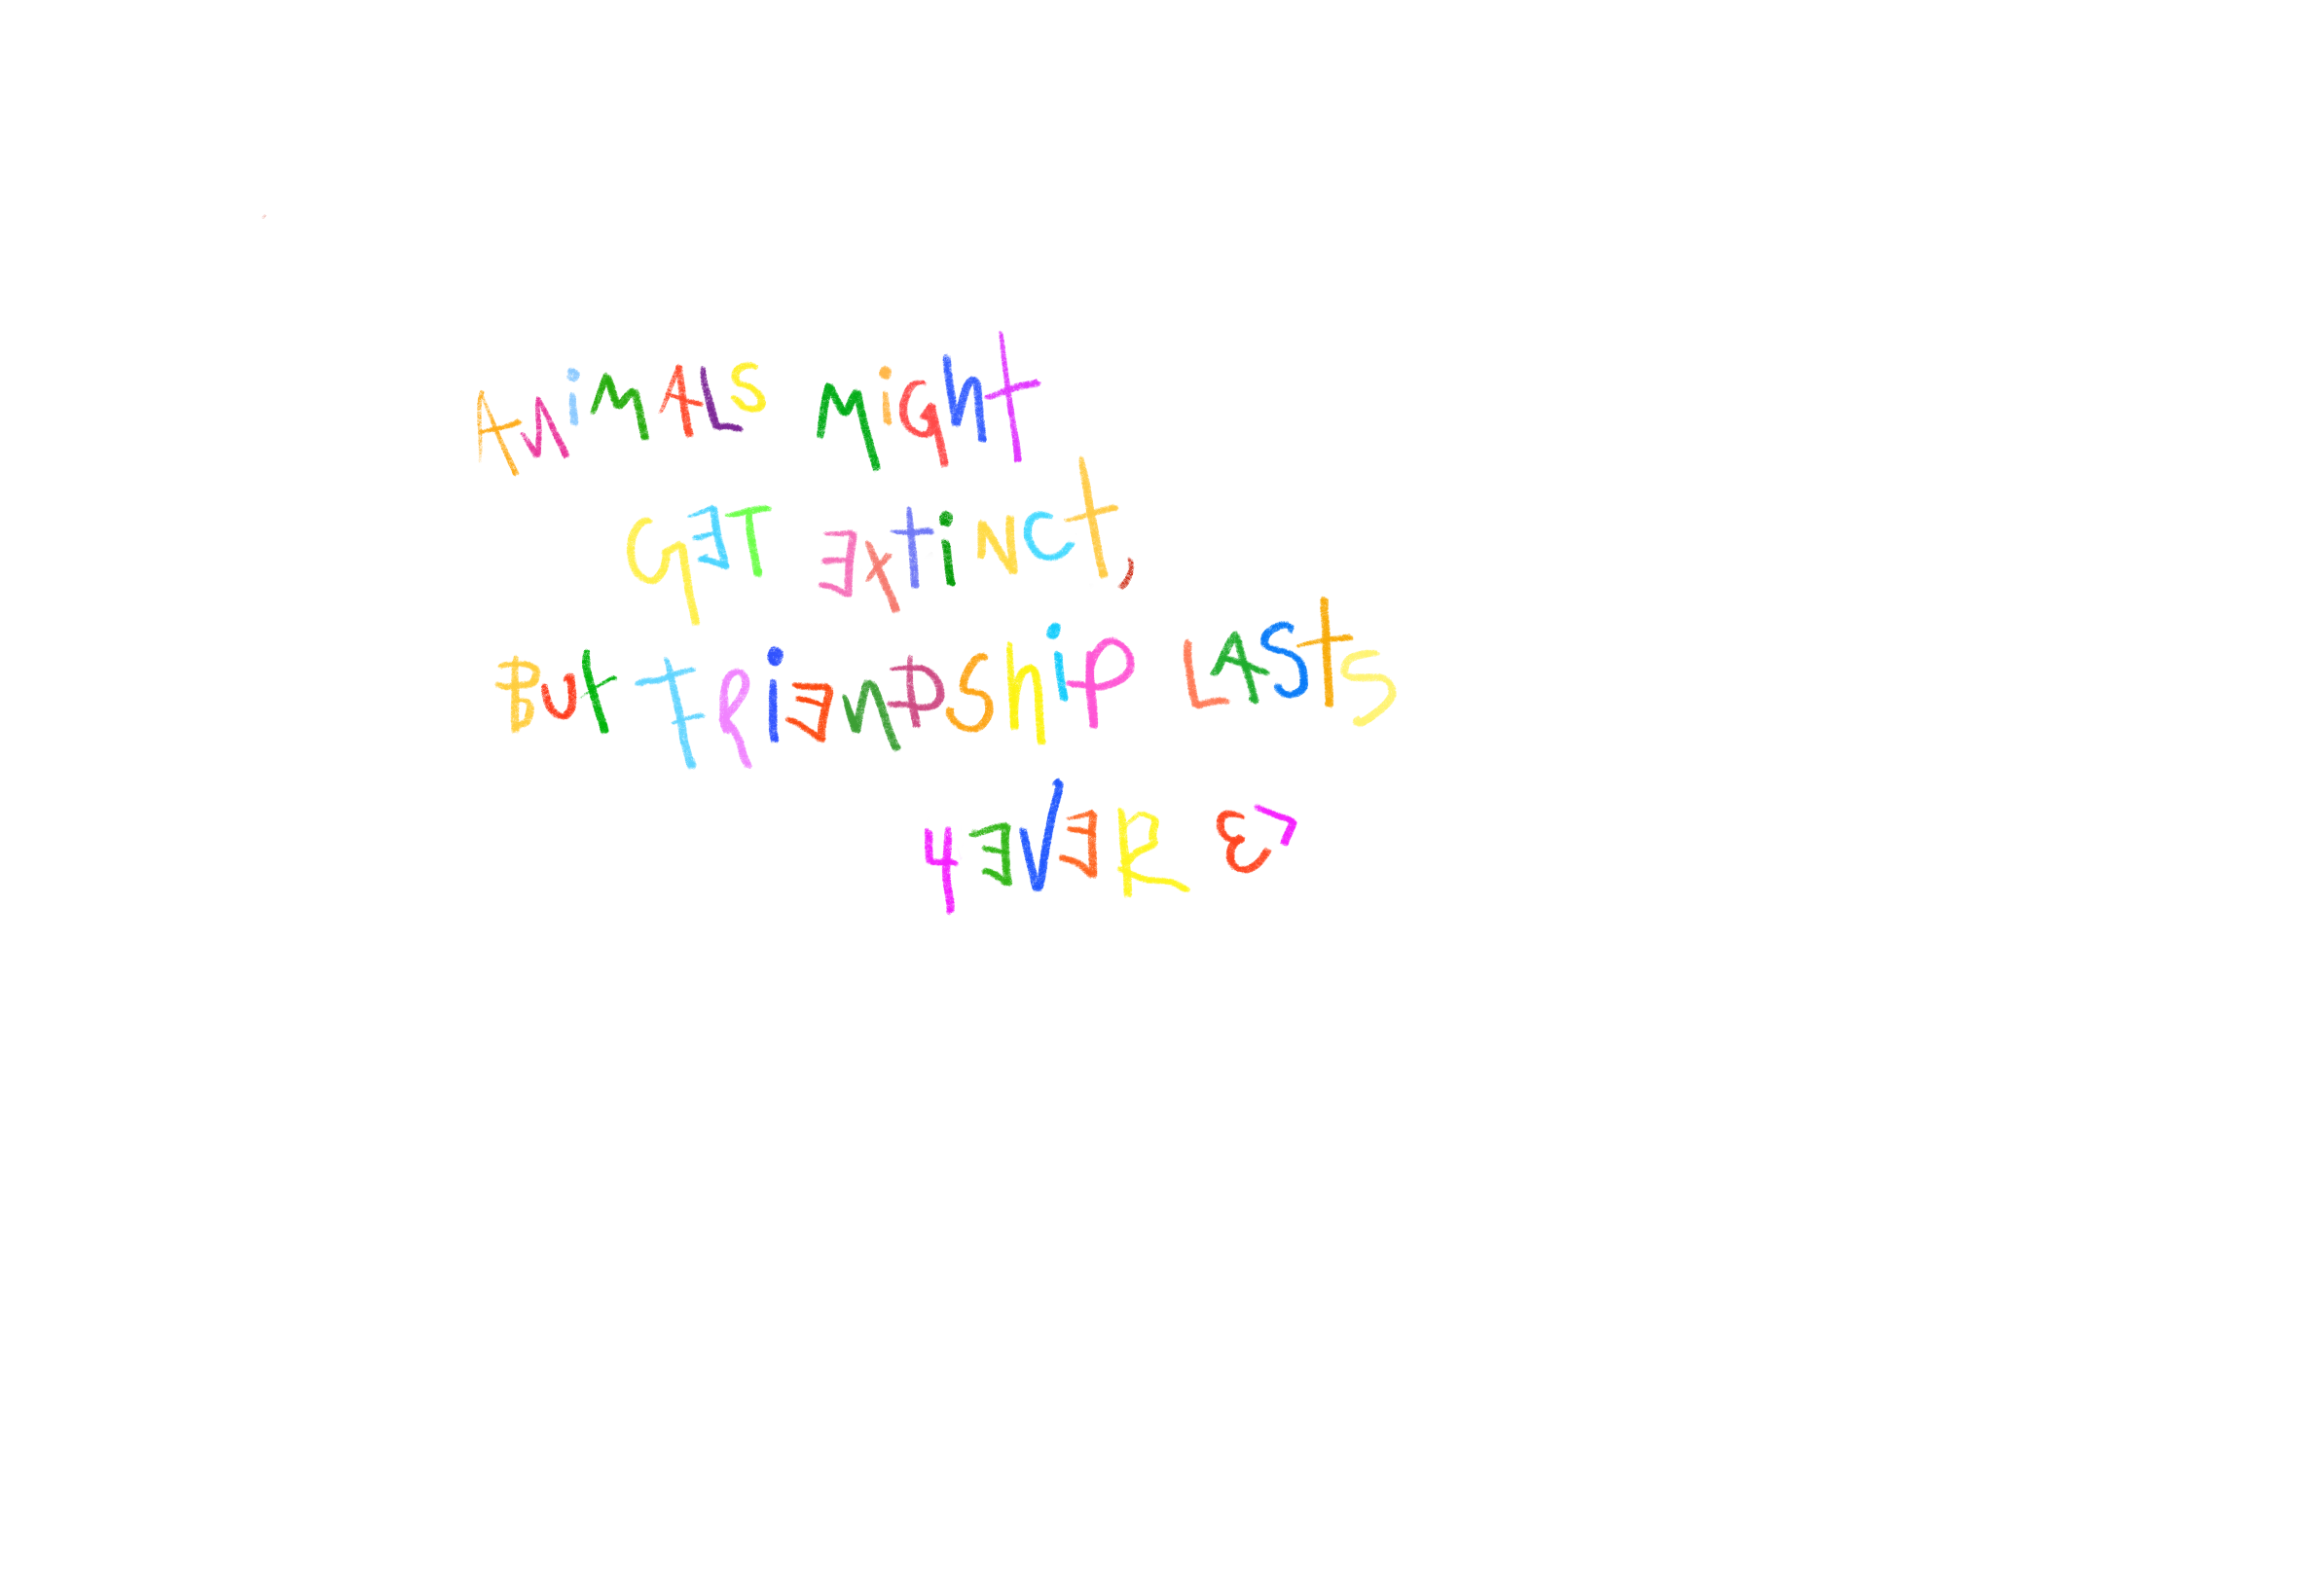 ANiMALS MigHt
GET EXtiNCt,
But FRiENDShiP LASts
4EVER ε>